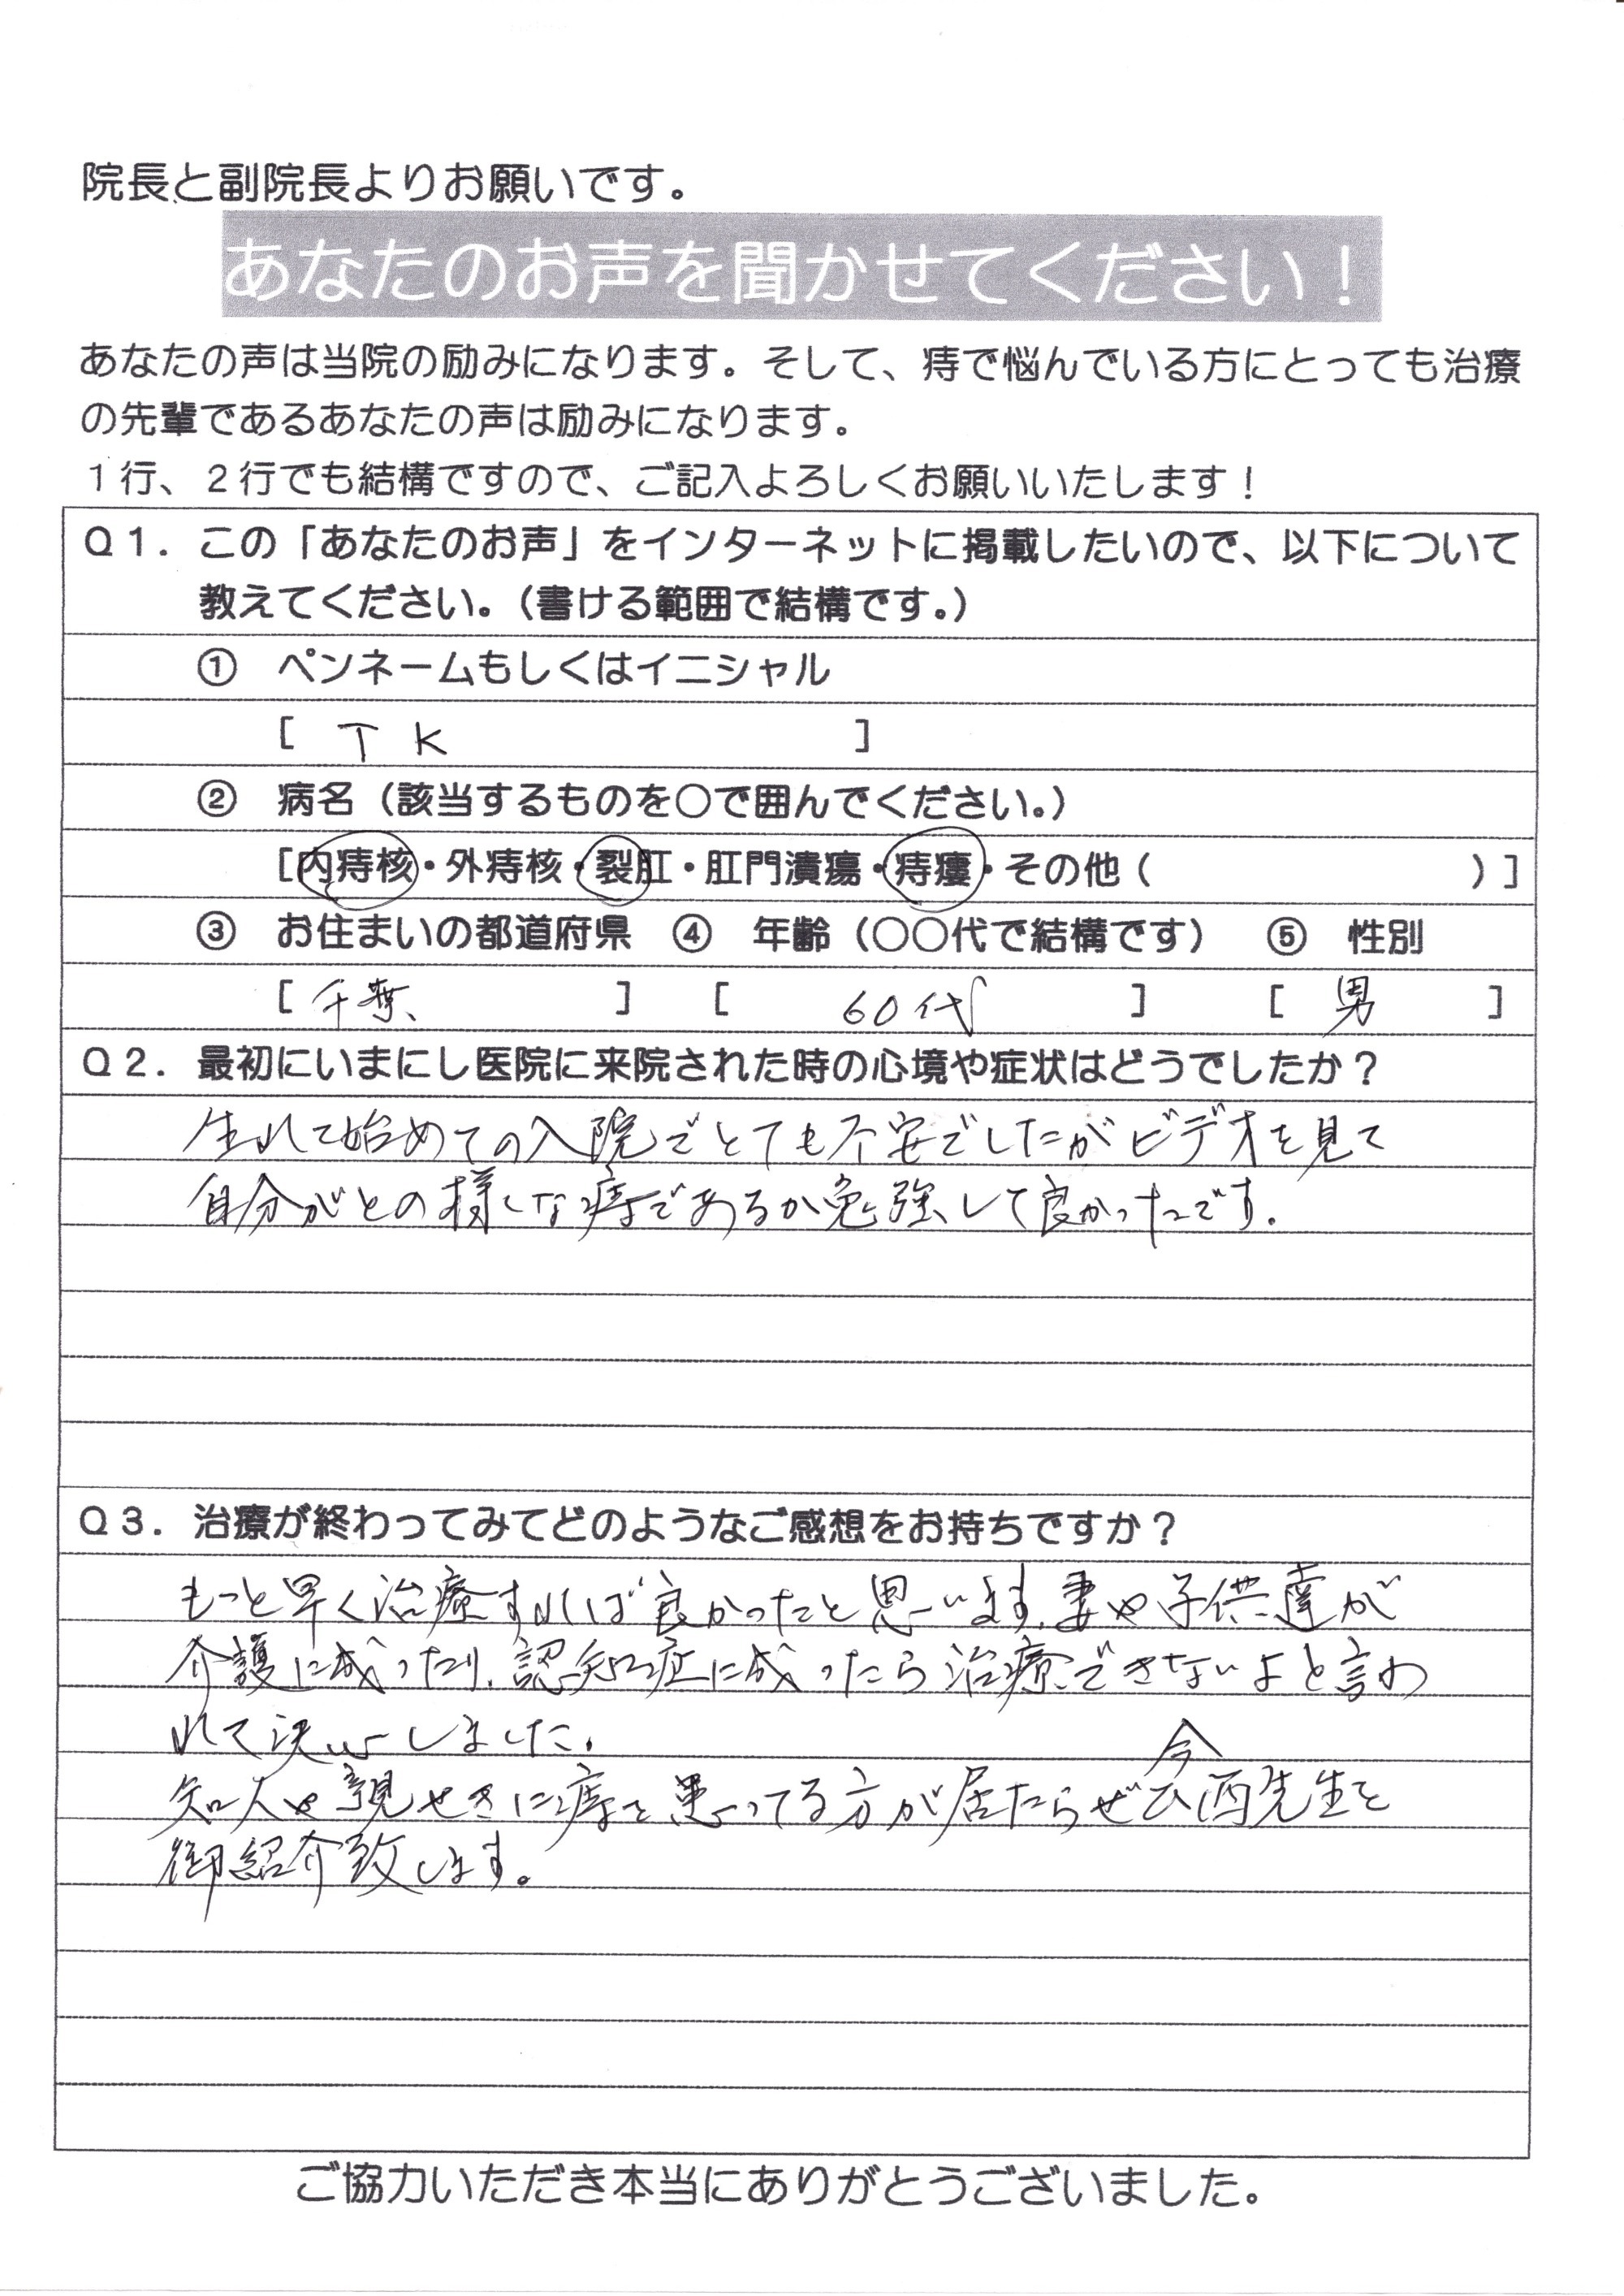 院長と副院長よりお願いです。
あなたのお声を聞かせてください！
あなたの声は当院の励みになります。そして、痔で悩んでいる方にとっても治療
の先輩であるあなたの声は励みになります。
１行、２行でも結構ですので、ご記入よろしくお願いいたします！
Ｑ１．この「あなたのお声」をインターネットに掲載したいので、以下について
教えてください。（書ける範囲で結構です。）
① ペンネームもしくはイニシャル
[ T K ]
② 病名（該当するものを○で囲んでください。）
[内痔核・外痔核・裂肛・肛門潰瘍・痔瘻・その他（ ）]
③ お住まいの都道府県 ④ 年齢（○○代で結構です） ⑤ 性別
[ 千葉 ] [ 60代 ] [ 男 ]
Ｑ２．最初にいまにし医院に来院された時の心境や症状はどうでしたか？
生れて始めての入院でとても不安でしたがビデオを見て
自分がどの様な痔であるか勉強して良かったです。
Ｑ３．治療が終わってみてどのようなご感想をお持ちですか？
もっと早く治療すれば良かったと思います。妻や子供達が
介護に成ったり、認知症に成ったら治療できないよと言わ
れて決心しました。
知人や親せきに痔を患ってる方が居たらぜひ今西先生を
御紹介致します。
ご協力いただき本当にありがとうございました。